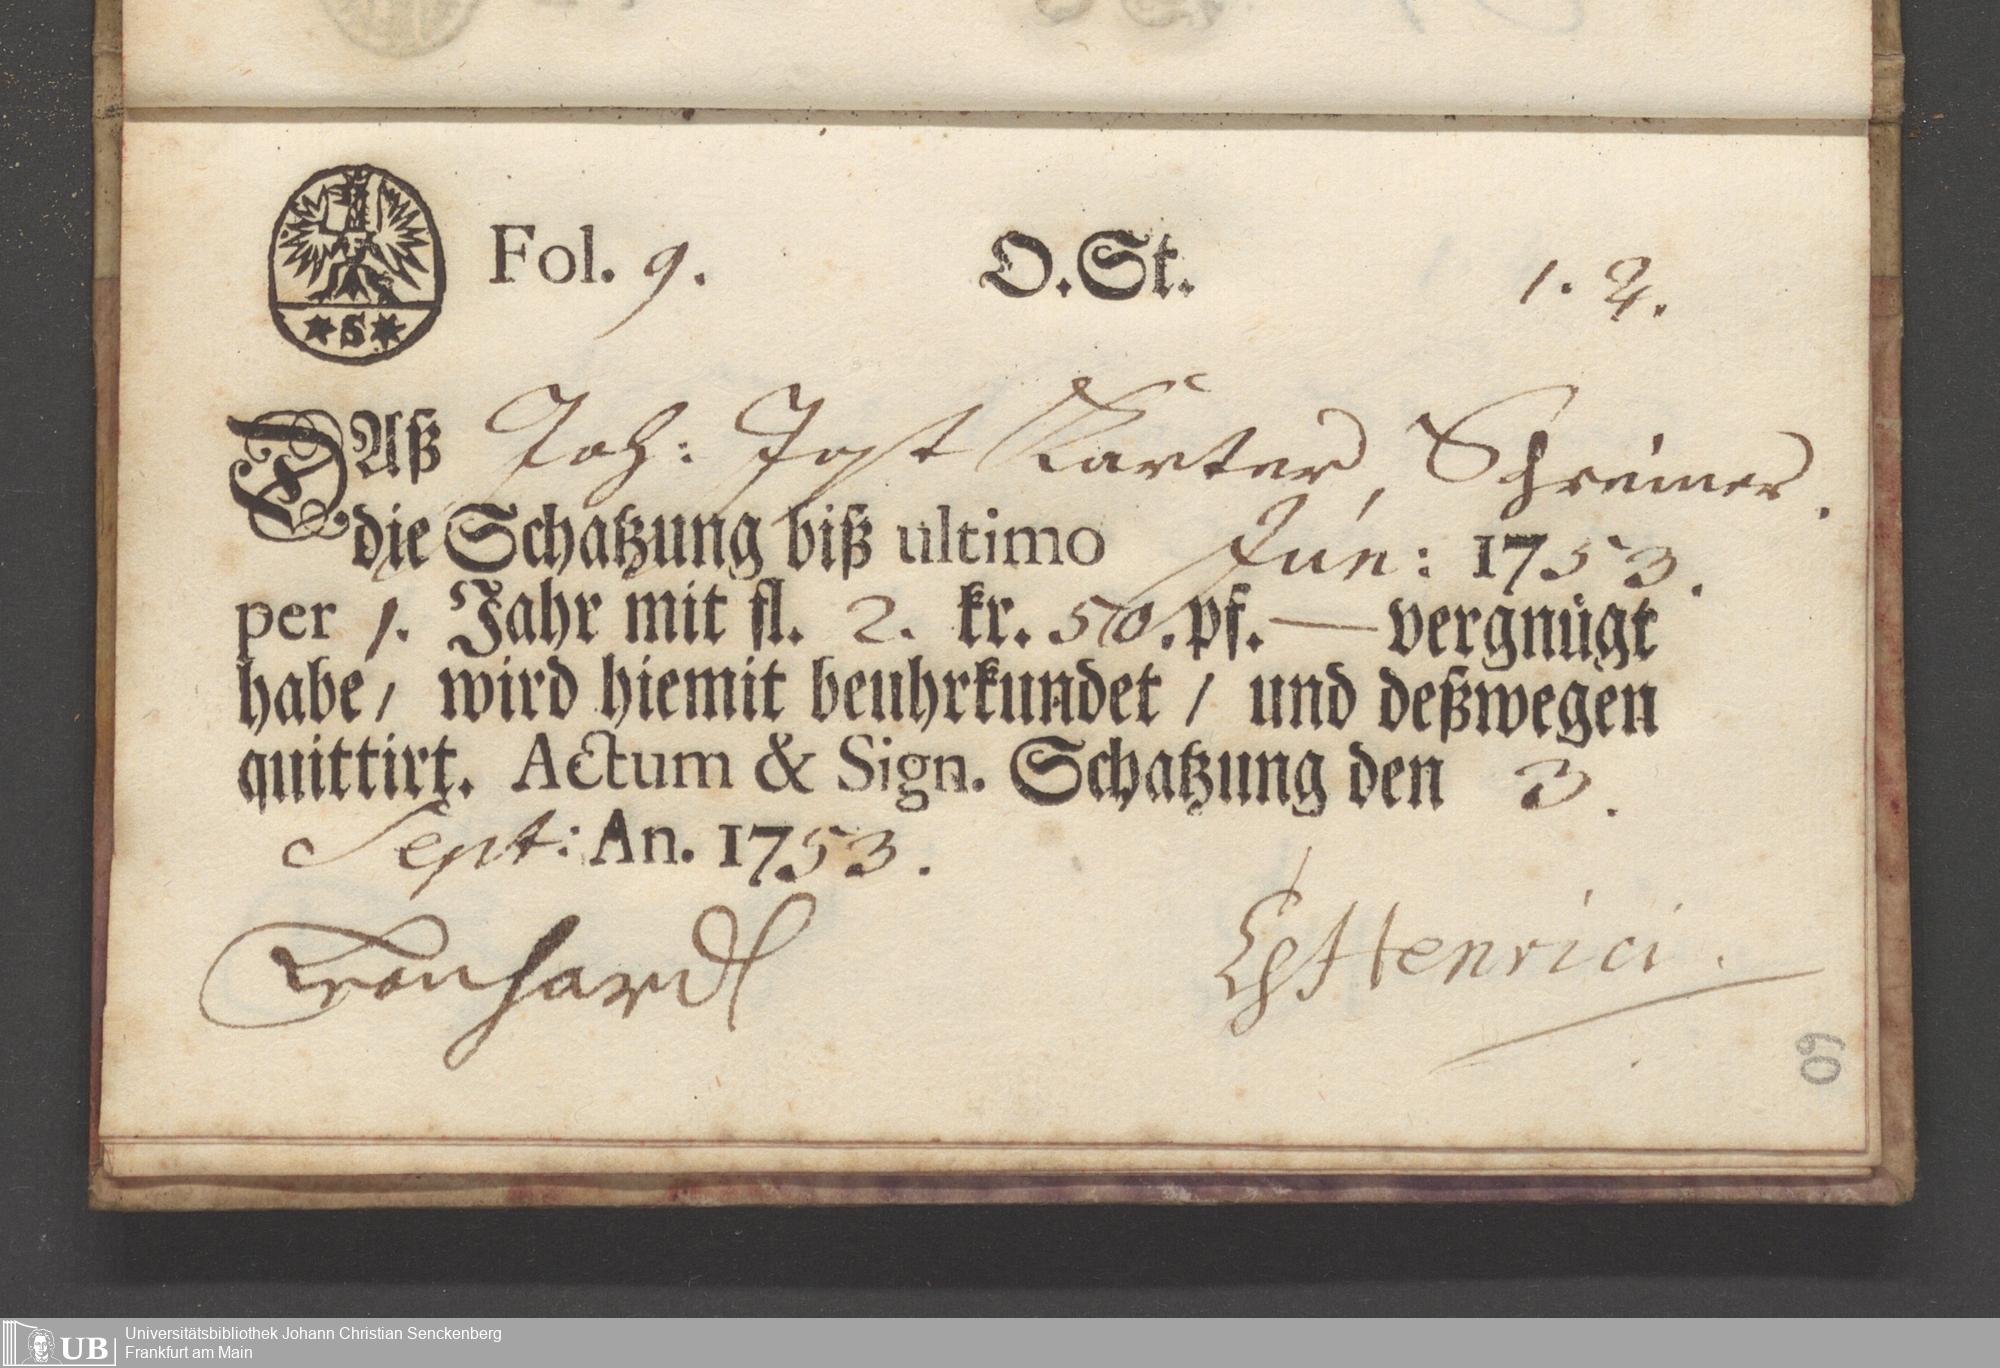 Fol. 9. O.St. 1. 2.
*S*
DAß Joh: Jost Karter, Schreiner.
die Schatzung biß ultimo Jun: 1753.
per 1. Jahr mit fl. 2. kr. 50. pf. — vergnügt
habe / wird hiemit beuhrkundet / und deßwegen
quittirt. Actum & Sign. Schatzung den 3.
Sept: An. 1753.
Henrici.
60
UB Universitätsbibliothek Johann Christian Senckenberg
Frankfurt am Main